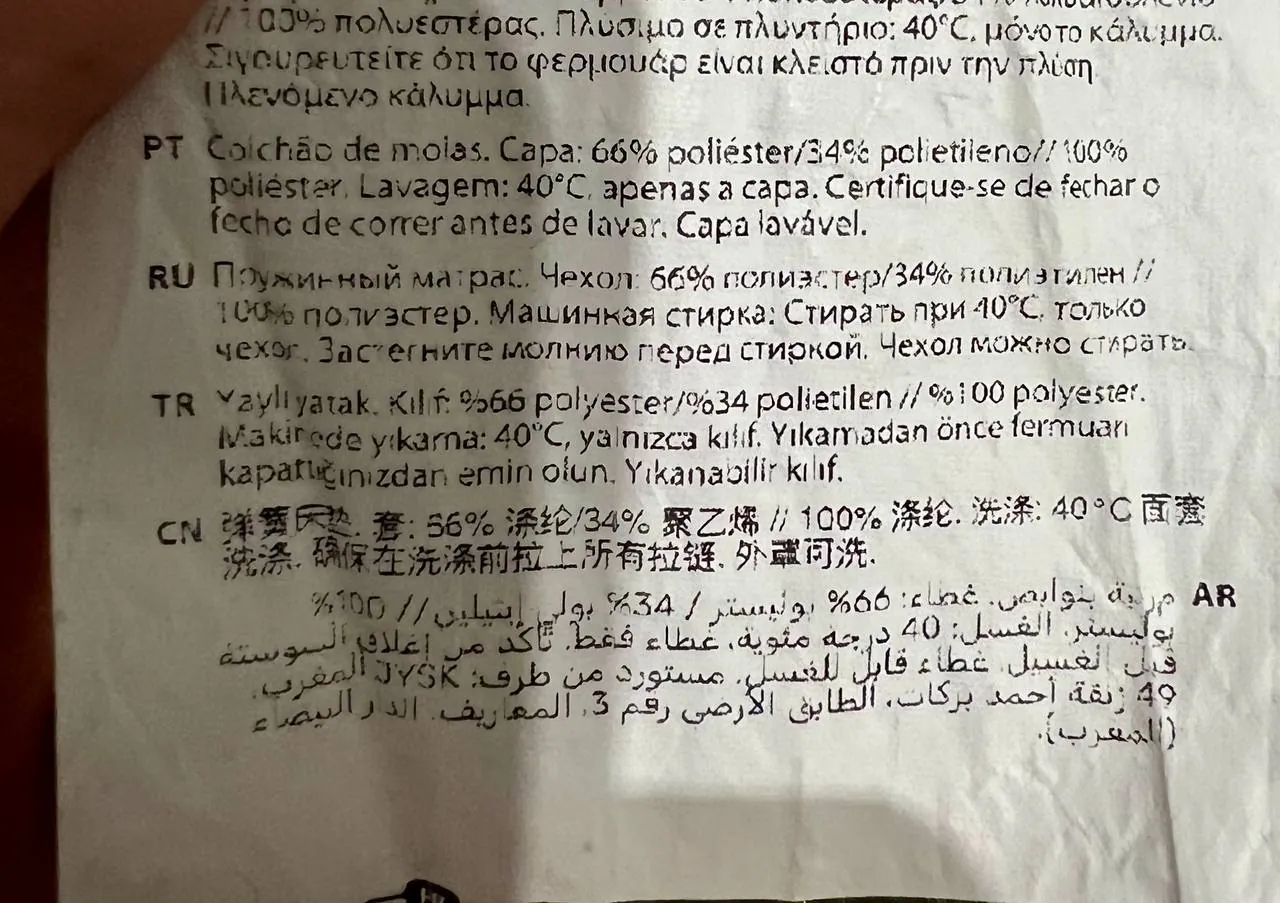 // 100% πολυεστέρας. Πλύσιμο σε πλυντήριο: 40°C, μόνο το κάλυμμα.
Σιγουρευτείτε ότι το φερμουάρ είναι κλειστό πριν την πλύση
Πλενόμενο κάλυμμα.
PT Colchão de molas. Capa: 66% poliéster/34% polietileno//100%
poliéster. Lavagem: 40°C, apenas a capa. Certifique-se de fechar o
fecho de correr antes de lavar. Capa lavável.
RU Пружинный матрас. Чехол: 66% полиэстер/34% полиэтилен //
100% полиэстер. Машинная стирка: Стирать при 40°C, только
чехол. Застегните молнию перед стиркой. Чехол можно стирать.
TR Yaylı yatak. Kılıf: %66 polyester/%34 polietilen // %100 polyester.
Makinede yıkama: 40°C, yalnızca kılıf. Yıkamadan önce fermuarı
kapattığınızdan emin olun. Yıkanabilir kılıf.
CN 弹簧床垫. 套: 66% 涤纶/34% 聚乙烯 // 100% 涤纶. 洗涤: 40°C 面套
洗涤. 确保在洗涤前拉上所有拉链. 外罩可洗.
AR مرتبة بنوابض. غطاء: 66% بوليستر / 34% بولي إيثيلين // 100%
بوليستر. الغسل: 40 درجة مئوية، غطاء فقط. تأكد من إغلاق السوستة
قبل الغسيل. غطاء قابل للغسل. مستورد من طرف: JYSK المغرب،
49 زنقة أحمد بركات، الطابق الأرضي رقم 3، المعاريف، الدار البيضاء
(المغرب).